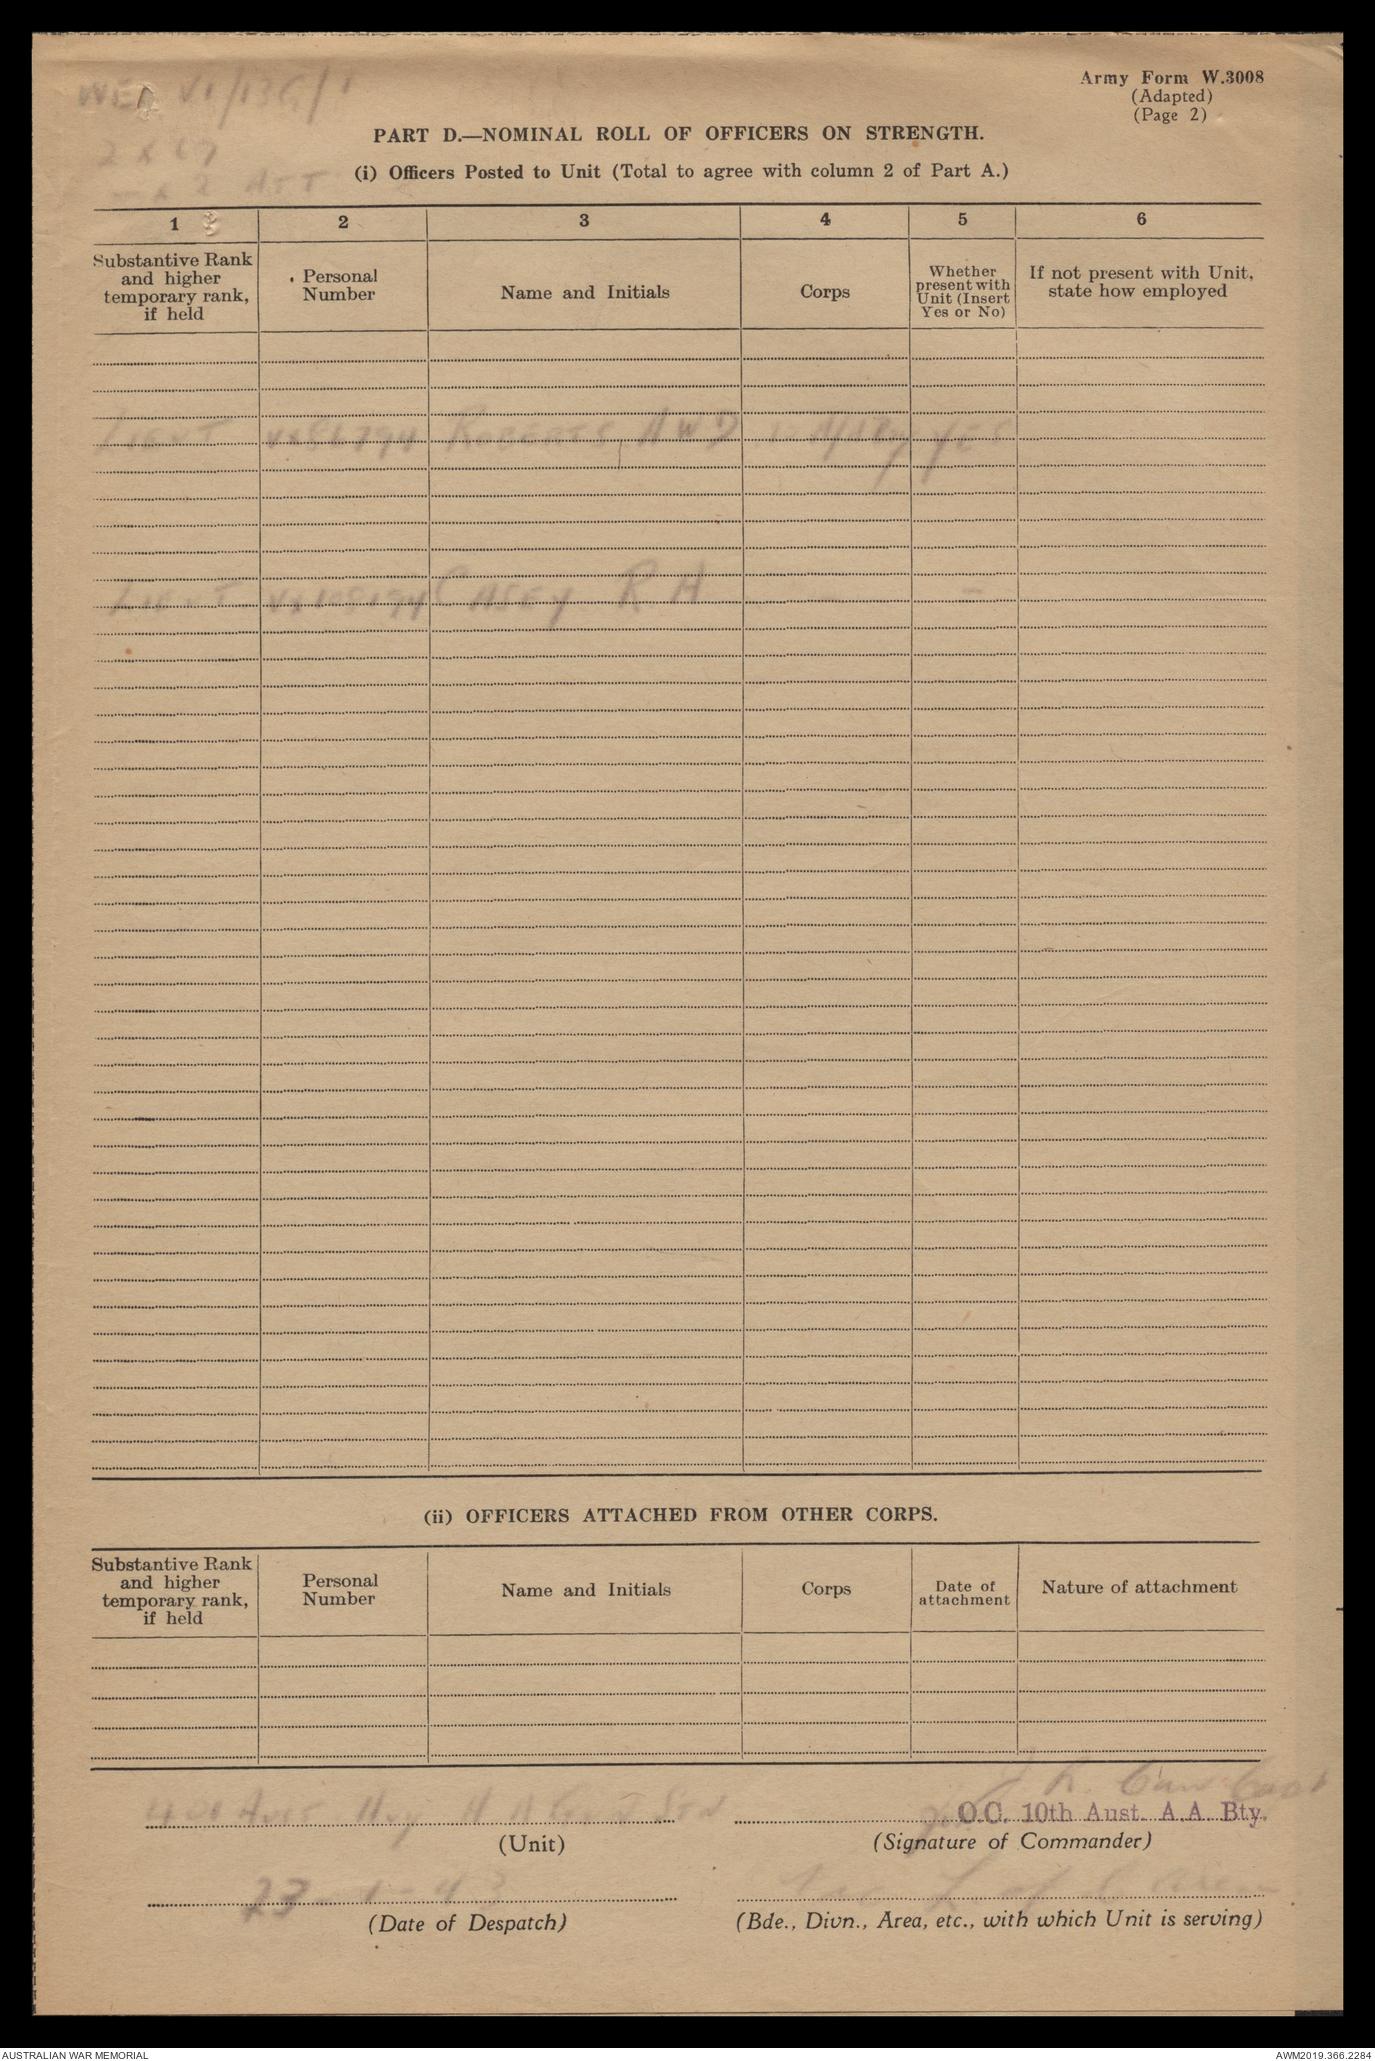 Army Form W.3008
(Adapted)
(Page 2)
WE V1/13G/1
PART D.—NOMINAL ROLL OF OFFICERS ON STRENGTH.
2 x
(i) Officers Posted to Unit (Total to agree with column 2 of Part A.)
1 2 3 4 5 6
Substantive Rank and higher temporary rank, if held
Personal Number
Name and Initials
Corps
Whether present with Unit (Insert Yes or No)
If not present with Unit, state how employed
LIEUT ROBERTS, A W D YES
LIEUT CASEY R H
(ii) OFFICERS ATTACHED FROM OTHER CORPS.
Substantive Rank and higher temporary rank, if held
Personal Number
Name and Initials
Corps
Date of attachment
Nature of attachment
401 Aust Hvy A A Gun Stn
O.C. 10th Aust. A.A. Bty.
(Unit) (Signature of Commander)
23-1-43 L of C
(Date of Despatch) (Bde., Divn., Area, etc., with which Unit is serving)
AUSTRALIAN WAR MEMORIAL AWM2019.366.2284